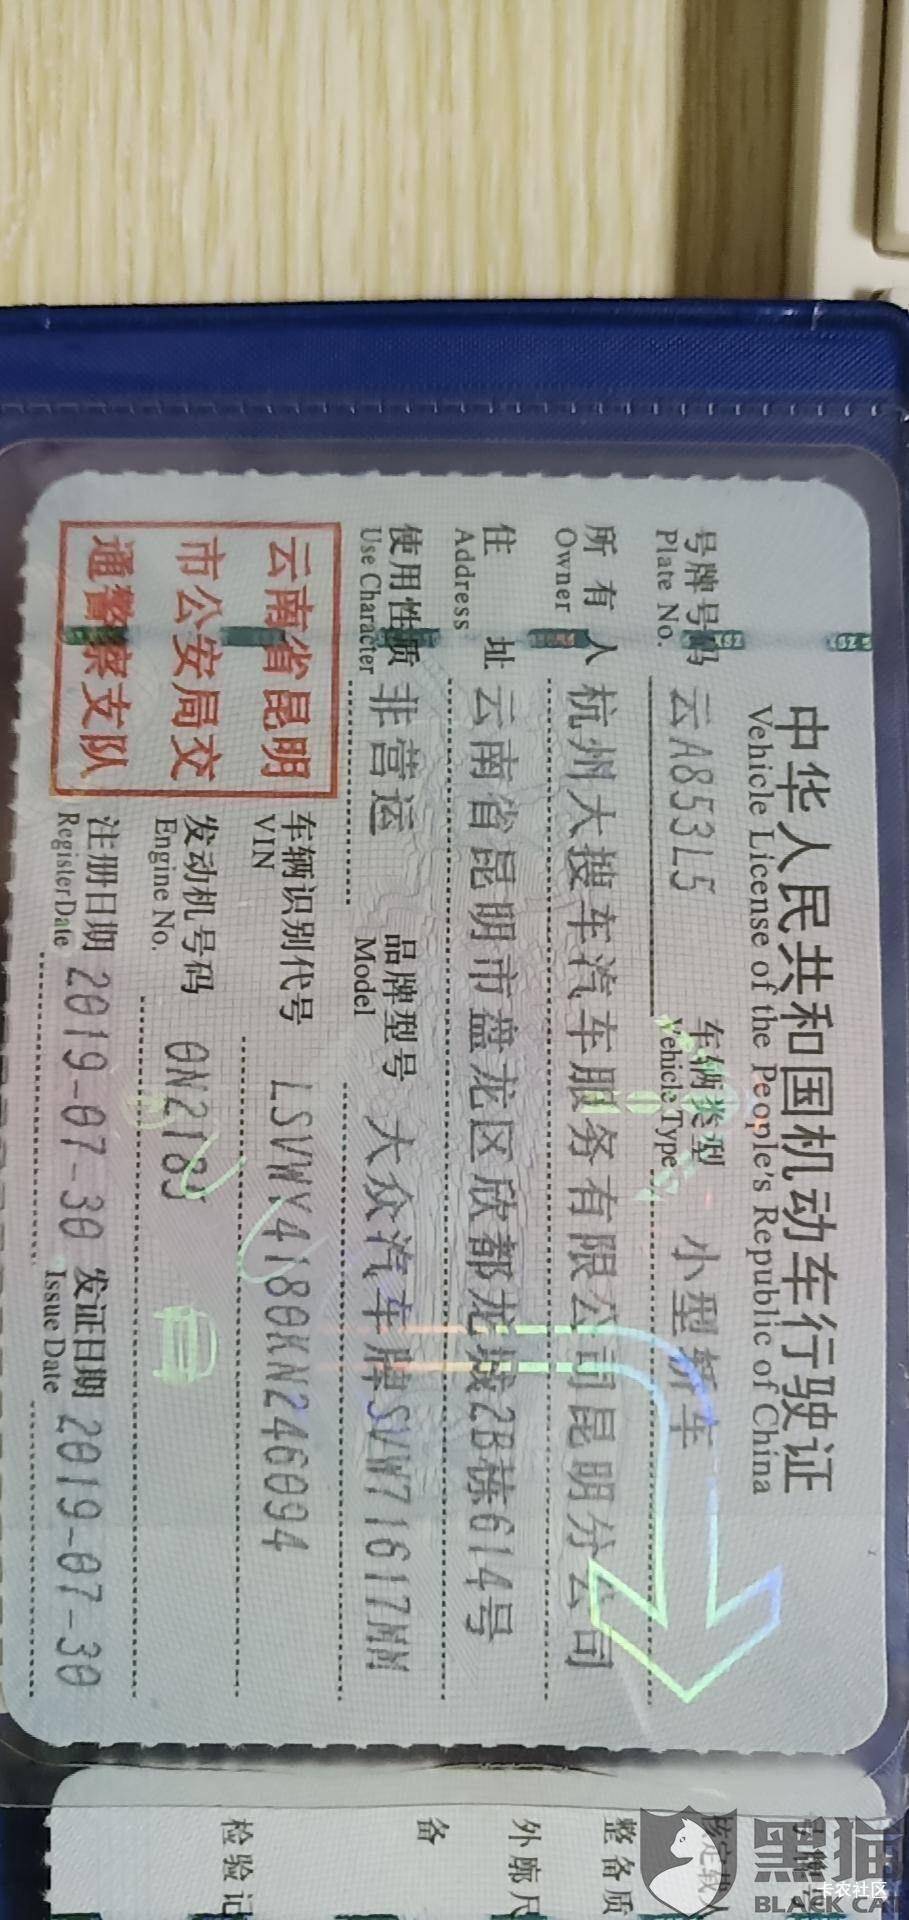 中华人民共和国机动车行驶证
Vehicle License of the People's Republic of China
号牌号码 云A853L5 车辆类型 小型轿车
Plate No. Vehicle Type
所有人 杭州大搜车汽车服务有限公司昆明分公司
Owner
住址 云南省昆明市盘龙区欣都龙城2B栋614号
Address
使用性质 非营运 品牌型号 大众汽车牌SVW71617MM
Use Character Model
云南省昆明
市公安局交
通警察支队
车辆识别代号 LSVWY4180KN246094
VIN
发动机号码 0N2189
Engine No.
注册日期 2019-07-30 发证日期 2019-07-30
Register Date Issue Date
号牌
核定载人
整备质
外廓尺
备
检验记
黑猫
BLACK CAT
卡农社区